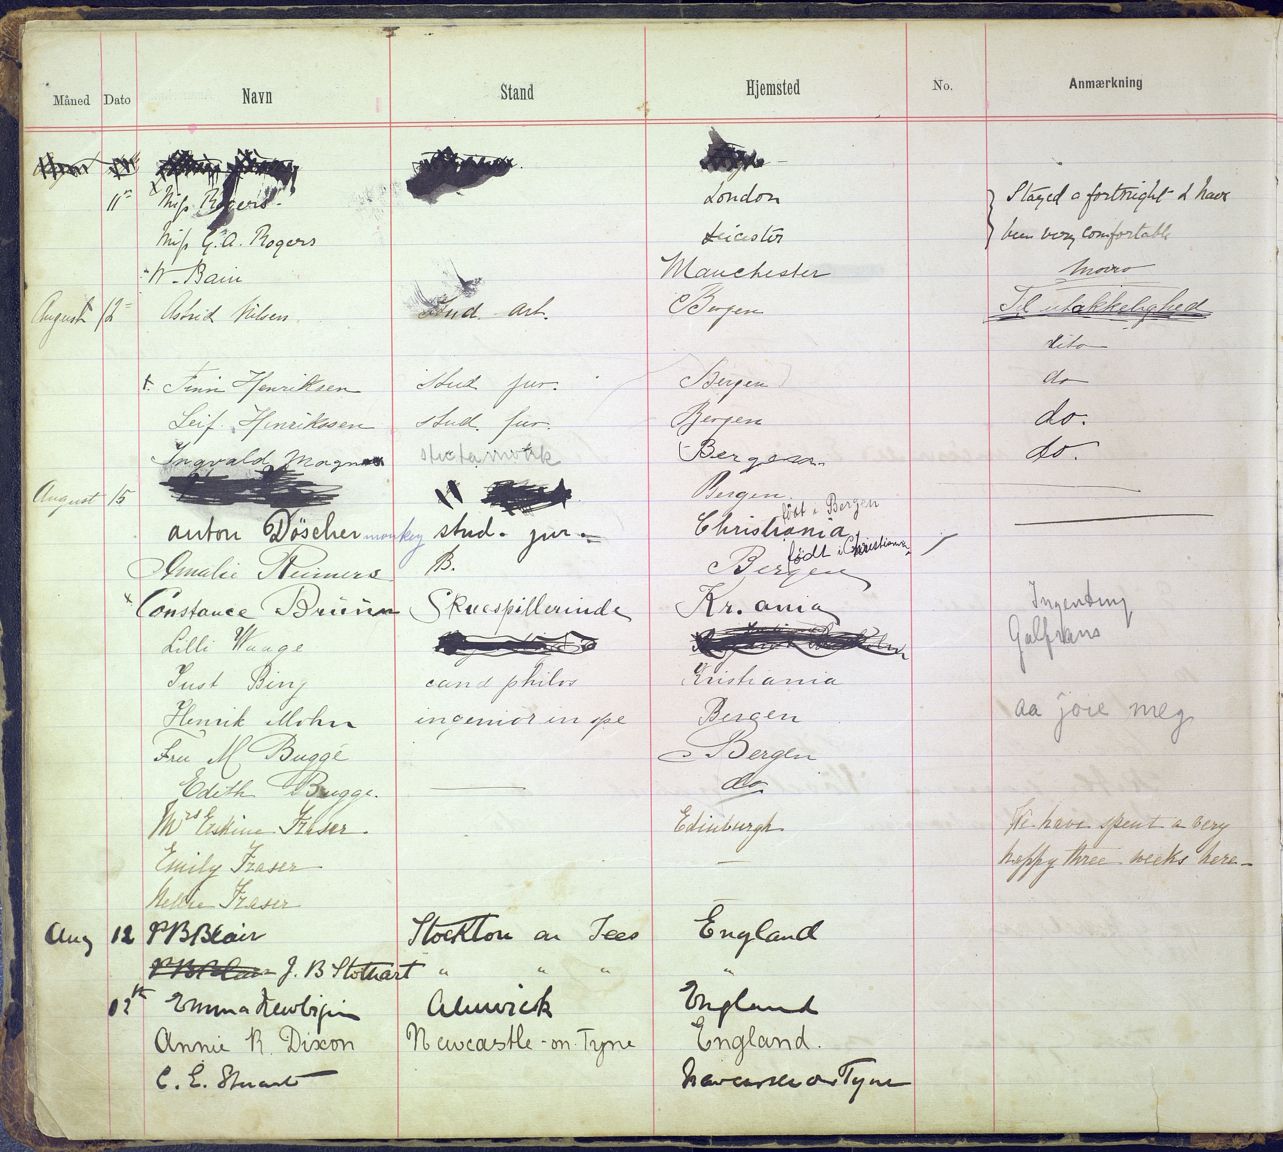 Måned Dato Navn Stand Hjemsted No. Anmærkning
11 Miss Rogers London Stayed a fortnight & have
Miss G. A. Rogers Leicester been very comfortable
W. Bain Manchester
August 12 Astrid Nilsen Stud. art. Bergen
dito
Finn Henriksen stud jur. Bergen do
Leif Henrikssen stud. jur. Bergen do.
Ingvald Bergen do.
August 15 Bergen
født i Bergen
anton Döscher monkey stud. jur. Christiania
født i Christiania
Amalie Reimers B. Bergen
Constance Bruun Skuespillerinde Kr.ania Ingenting
Lilli Waage
Just Bing cand philos Kristiania
Henrik Mohn ingeniør in spe Bergen aa joie meg
Fru M Bugge Bergen
Edith Bugge. do
Mrs Erskine Fraser. Edinburgh We have spent a very
Emily Fraser — happy three weeks here—
Nellie Fraser
Aug 12 P B Blair Stockton on Tees England
J. B Stothart " " " "
12th Emma Newbigin Alnwick England
Annie R. Dixon Newcastle-on-Tyne England.
C. E. Stuart Newcastle on Tyne